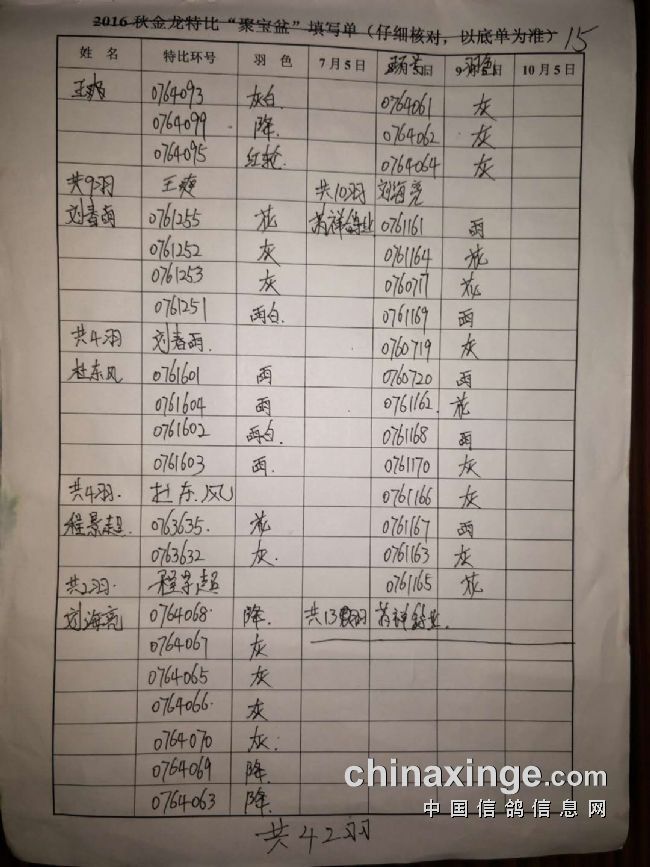 2016 秋金龙特比“聚宝盆”填写单（仔细核对，以底单为准） 15
姓 名 特比环号 羽 色 7月5日 日 9 日 10月5日
王爽 0764093 灰白. 0764061 灰
0764099 降. 0764062 灰
0764095 红轮 0764064 灰
共9羽 王爽 共10羽 刘海亮
刘春雨 0761255 花 祥鸽业 0761161 雨
0761252 灰 0761164 花
0761253 灰 0760717 花
0761251 雨白. 0761169 雨
共4羽 刘春雨. 0760719 灰
杜东风 0761601 雨 0760720 雨
0761604 雨 0761162 花
0761602 雨白. 0761168 雨
0761603 雨. 0761170 灰
共4羽. 杜东风 0761166 灰
程景超. 0763635. 花 0761167 雨
0763632 灰. 0761163 灰
共2羽. 程景超 0761165 花
刘海亮 0764068. 降. 共13羽 祥鸽业.
0764067 灰
0764065 灰
0764066. 灰
0764070 灰.
0764069 降.
0764063 降.
共42羽
chinaxinge.com
中国信鸽信息网